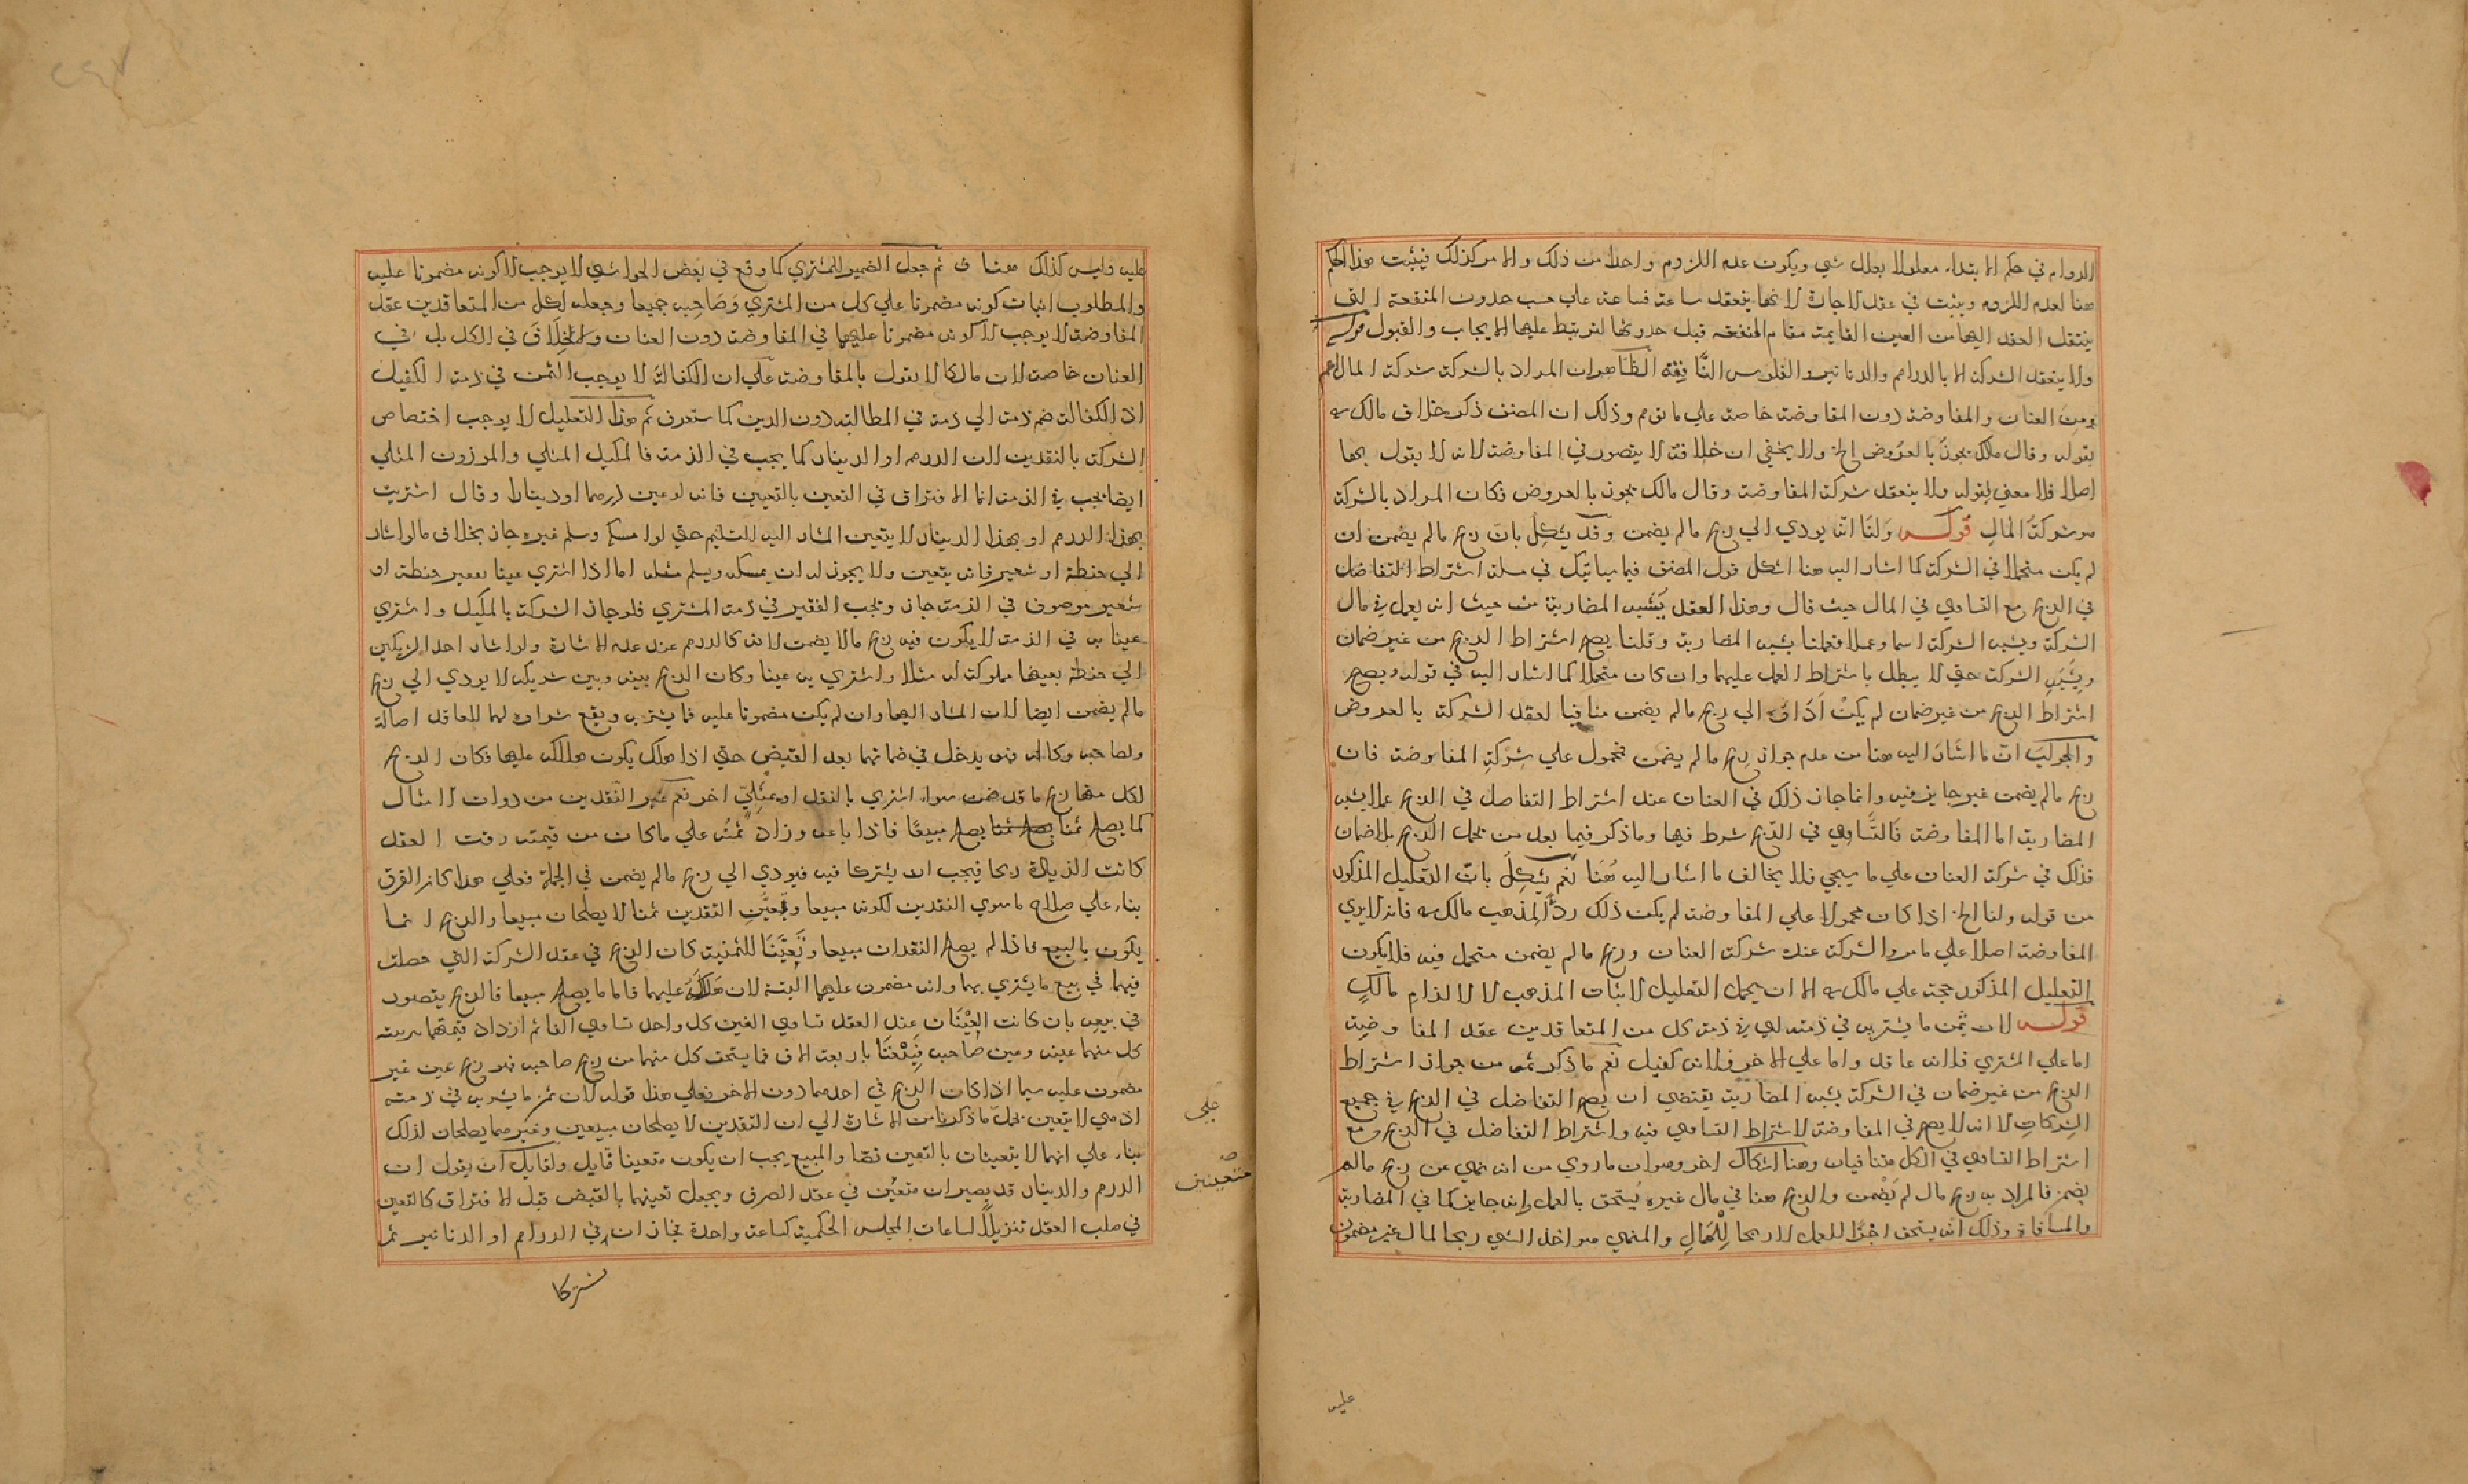 الدوام في حكم الابتداء معلولا بعلل شي ويكون عدم اللزوم واحدا من ذلك والامر كذلك فيثبت هذا الحكم
هنا لعدم اللزوم ويثبت في عقد الاجارة لانها ينعقد ساعة فساعة علي حسب حدوث المنفعة
ينتقل العقد اليها من العين القايمة مقام المنفعه قبل حدوثها لترتبط عليها الايجاب والقبول قوله
ولا ينعقد الشركة الا بالدراهم والدنانير والفلوس النافقة الظاهر ان المراد بالشركة شركة المال اعم
من العنان والمفاوضة دون المفاوضة خاصة علي ما توهم وذلك ان المصنف ذكر خلاف مالك
بقوله وقال مالك يجوز بالعروض الخ ولا يخفي ان خلافه لا يتصور في المفاوضة لانه لا يقول بها
اصلا فلا معني لقوله ولا ينعقد شركة المفاوضة وقال مالك يجوز بالعروض فكان المراد بالشركة
هو شركة المال قوله ولنا انه يودي الي ربح مالم يضمن وقد يشكل بان ربح مالم يضمن ان
لم يكن متحملا في الشركة كما اشار اليه هنا اشكل قول المصنف فيما سياتيك في مسئلة اشتراط التفاضل
في الربح مع التساوي في المال حيث قال وهذا العقد يشبه المضاربة من حيث انه يعمل في مال
الشركة ويشبه الشركة اسما وعملا فعملنا بشبه المضاربة وقلنا يصح اشتراط الربح من غير ضمان
وبشبه الشركة حتي لا يبطل باشتراط العمل عليهما وان كان متحملا كما اشار اليه في قوله ويصح
اشتراط الربح من غير ضمان لم يكن اداؤه الي ربح مالم يضمن منافيا لعقد الشركة بالعروض
والجواب ان ما اشار اليه هنا من عدم جواز ربح مالم يضمن محمول علي شركة المفاوضة فان
ربح مالم يضمن غير جايز فيه وانما جاز ذلك في العنان عند اشتراط التفاضل في الربح عملا بشبه
المضاربة اما المفاوضة فالتساوي في الربح شرط فيها وما ذكر فيما بعد من تحمل الربح بلا ضمان
فذلك في شركة العنان علي ما سيجي فلا يخالف ما اشار اليه هنا نعم يشكل بان التعليل المذكور
من قوله ولنا الخ اذا كان محمولا علي المفاوضة لم يكن ذلك ردا لمذهب مالك فانه لا يري
المفاوضة اصلا علي ما مر والشركة عنده شركة العنان وربح مالم يضمن متحمل فيه فلا يكون
التعليل المذكور حجة علي مالك الا ان يحمل التعليل لاثبات المذهب لا لالزام مالك
قوله لان ثمن ما يشتريه في ذمته اي في ذمة كل من المتعاقدين عقد المفاوضة
اما علي المشتري فلانه عاقد واما علي الاخر فلانه كفيل نعم ما ذكر ثمه من جواز اشتراط
الربح من غير ضمان في الشركة بشبه المضاربة يقتضي ان يصح التفاضل في الربح في جميع
الشركات الا انه لا يصح في المفاوضة لاشتراط التساوي فيه واشتراط التفاضل في الربح مع
اشتراط التساوي في الكل متنافيان وهنا اشكال اخر وهو ان ما روي من انه نهي عن ربح مالم
يضمن فالمراد به ربح مال لم يضمن والربح هنا في مال غيره يستحق بالعمل وانه جايز كما في المضاربة
والمساقاة وذلك انه يستحق اجرا للعمل لا ربحا للمال والمنهي هو اخذ الشي ربحا لمال غير مضمون
عليه
عليه وليس كذلك هنا ثم جعل الضمير للمشتري كما وقع في بعض الحواشي لا يوجب الا كونه مضمونا عليه
والمطلوب اثبات كونه مضمونا علي كل من المشتري وصاحبه جميعا وجعله لكل من المتعاقدين عقد
المفاوضة لا يوجب الا كونه مضمونا عليهما في المفاوضة دون العنان والخلاف في الكل بل في
العنان خاصة لان مالكا لا يقول بالمفاوضة علي ان الكفالة لا يوجب الثمن في ذمة الكفيل
اذ الكفالة ضم ذمة الي ذمة في المطالبة دون الدين كما ستعرف ثم هذا التعليل لا يوجب اختصاص
الشركة بالنقدين لان الدرهم او الدينار كما يجب في الذمة فالمكيل المثلي والموزون المثلي
ايضا يجب في الذمة انما الافتراق في التعين بالتعيين فانه لو عين درهما او دينارا وقال اشتريت
بهذا الدرهم او بهذا الدينار لا يتعين المشار اليه للتسليم حتي لو امسكه وسلم غيره جاز بخلاف ما لو اشار
الي حنطة او شعير فانه يتعين ولا يجوز له ان يمسكه ويسلم مثله اما اذا اشتري عينا بقفيز حنطة او
شعير موصوف في الذمة جاز ويجب القفيز في ذمة المشتري فلو جاز الشركة بالمكيل واشتري
عينا به في الذمة لا يكون فيه ربح مالا يضمن لانه كالدرهم عند عدم الاشارة ولو اشار احد الشريكين
الي حنطة بعينها مملوكة له مثلا واشتري به عينا وكان الربح بينه وبين شريكه لا يودي الي ربح
مالم يضمن ايضا لان المشار اليها وان لم يكن مضمونا عليه فما يشتريه ويقع شراؤه لهما للعاقد اصالة
ولصاحبه وكالة فهو يدخل في ضمانهما بعد القبض حتي اذا هلك يكون هلاكه عليهما فكان الربح
لكل منهما ربح ما قد ضمن سواء اشتري بالنقد او بمثلي اخر نعم غير النقدين من ذوات الامثال
كما يصلح ثمنا يصلح مبيعا فاذا باعه وزاد ثمنه علي ما كان من قيمته وقت العقد
كانت الزيادة ربحا فيجب ان يشتركا فيه فيودي الي ربح مالم يضمن في الجملة فعلي هذا كان الفرق
بناء علي صلاح ما سوي النقدين لكونه مبيعا وتعين النقدين ثمنا لا يصلحان مبيعا والربح انما
يكون بالبيع فاذا لم يصلح النقدان مبيعا وتعينا للثمنية كان الربح في عقد الشركة التي حصلت
فيهما في بيع ما يشتري بهما وانه مضمون عليهما البتة لان هلاكه عليهما فاما ما يصلح مبيعا فالربح يتصور
في بيعه بان كانت العينان عند العقد تساوي الفين كل واحد تساوي الفا ثم ازداد قيمتهما
كل منهما عينه وعين صاحبه فبيعتا باربعة الاف فما يستحق كل منهما من ربح صاحبه فهو ربح عين غير
مضمون عليه سيما اذا كان الربح في احدهما دون الاخر فعلي هذا قوله لان ثمن ما يشتريه في ذمته
اذ هي لا يتعين يحمل ما ذكرنا من الاشارة الي ان النقدين لا يصلحان مبيعين وغيرهما يصلحان لذلك
بناء علي انهما لا يتعينان بالتعيين نصا والمبيع يجب ان يكون متعينا قايل ولقايل ان يقول ان
الدرهم والدينار قد يصيران متعين في عقد الصرف ويجعل تعينهما بالقبض قبل الافتراق كالتعين
في صلب العقد تنزيلا لساعات المجلس الحكمية كساعة واحدة فجاز ان في الدراهم او الدنانير ثم
علي
صح
متعينين
شركا